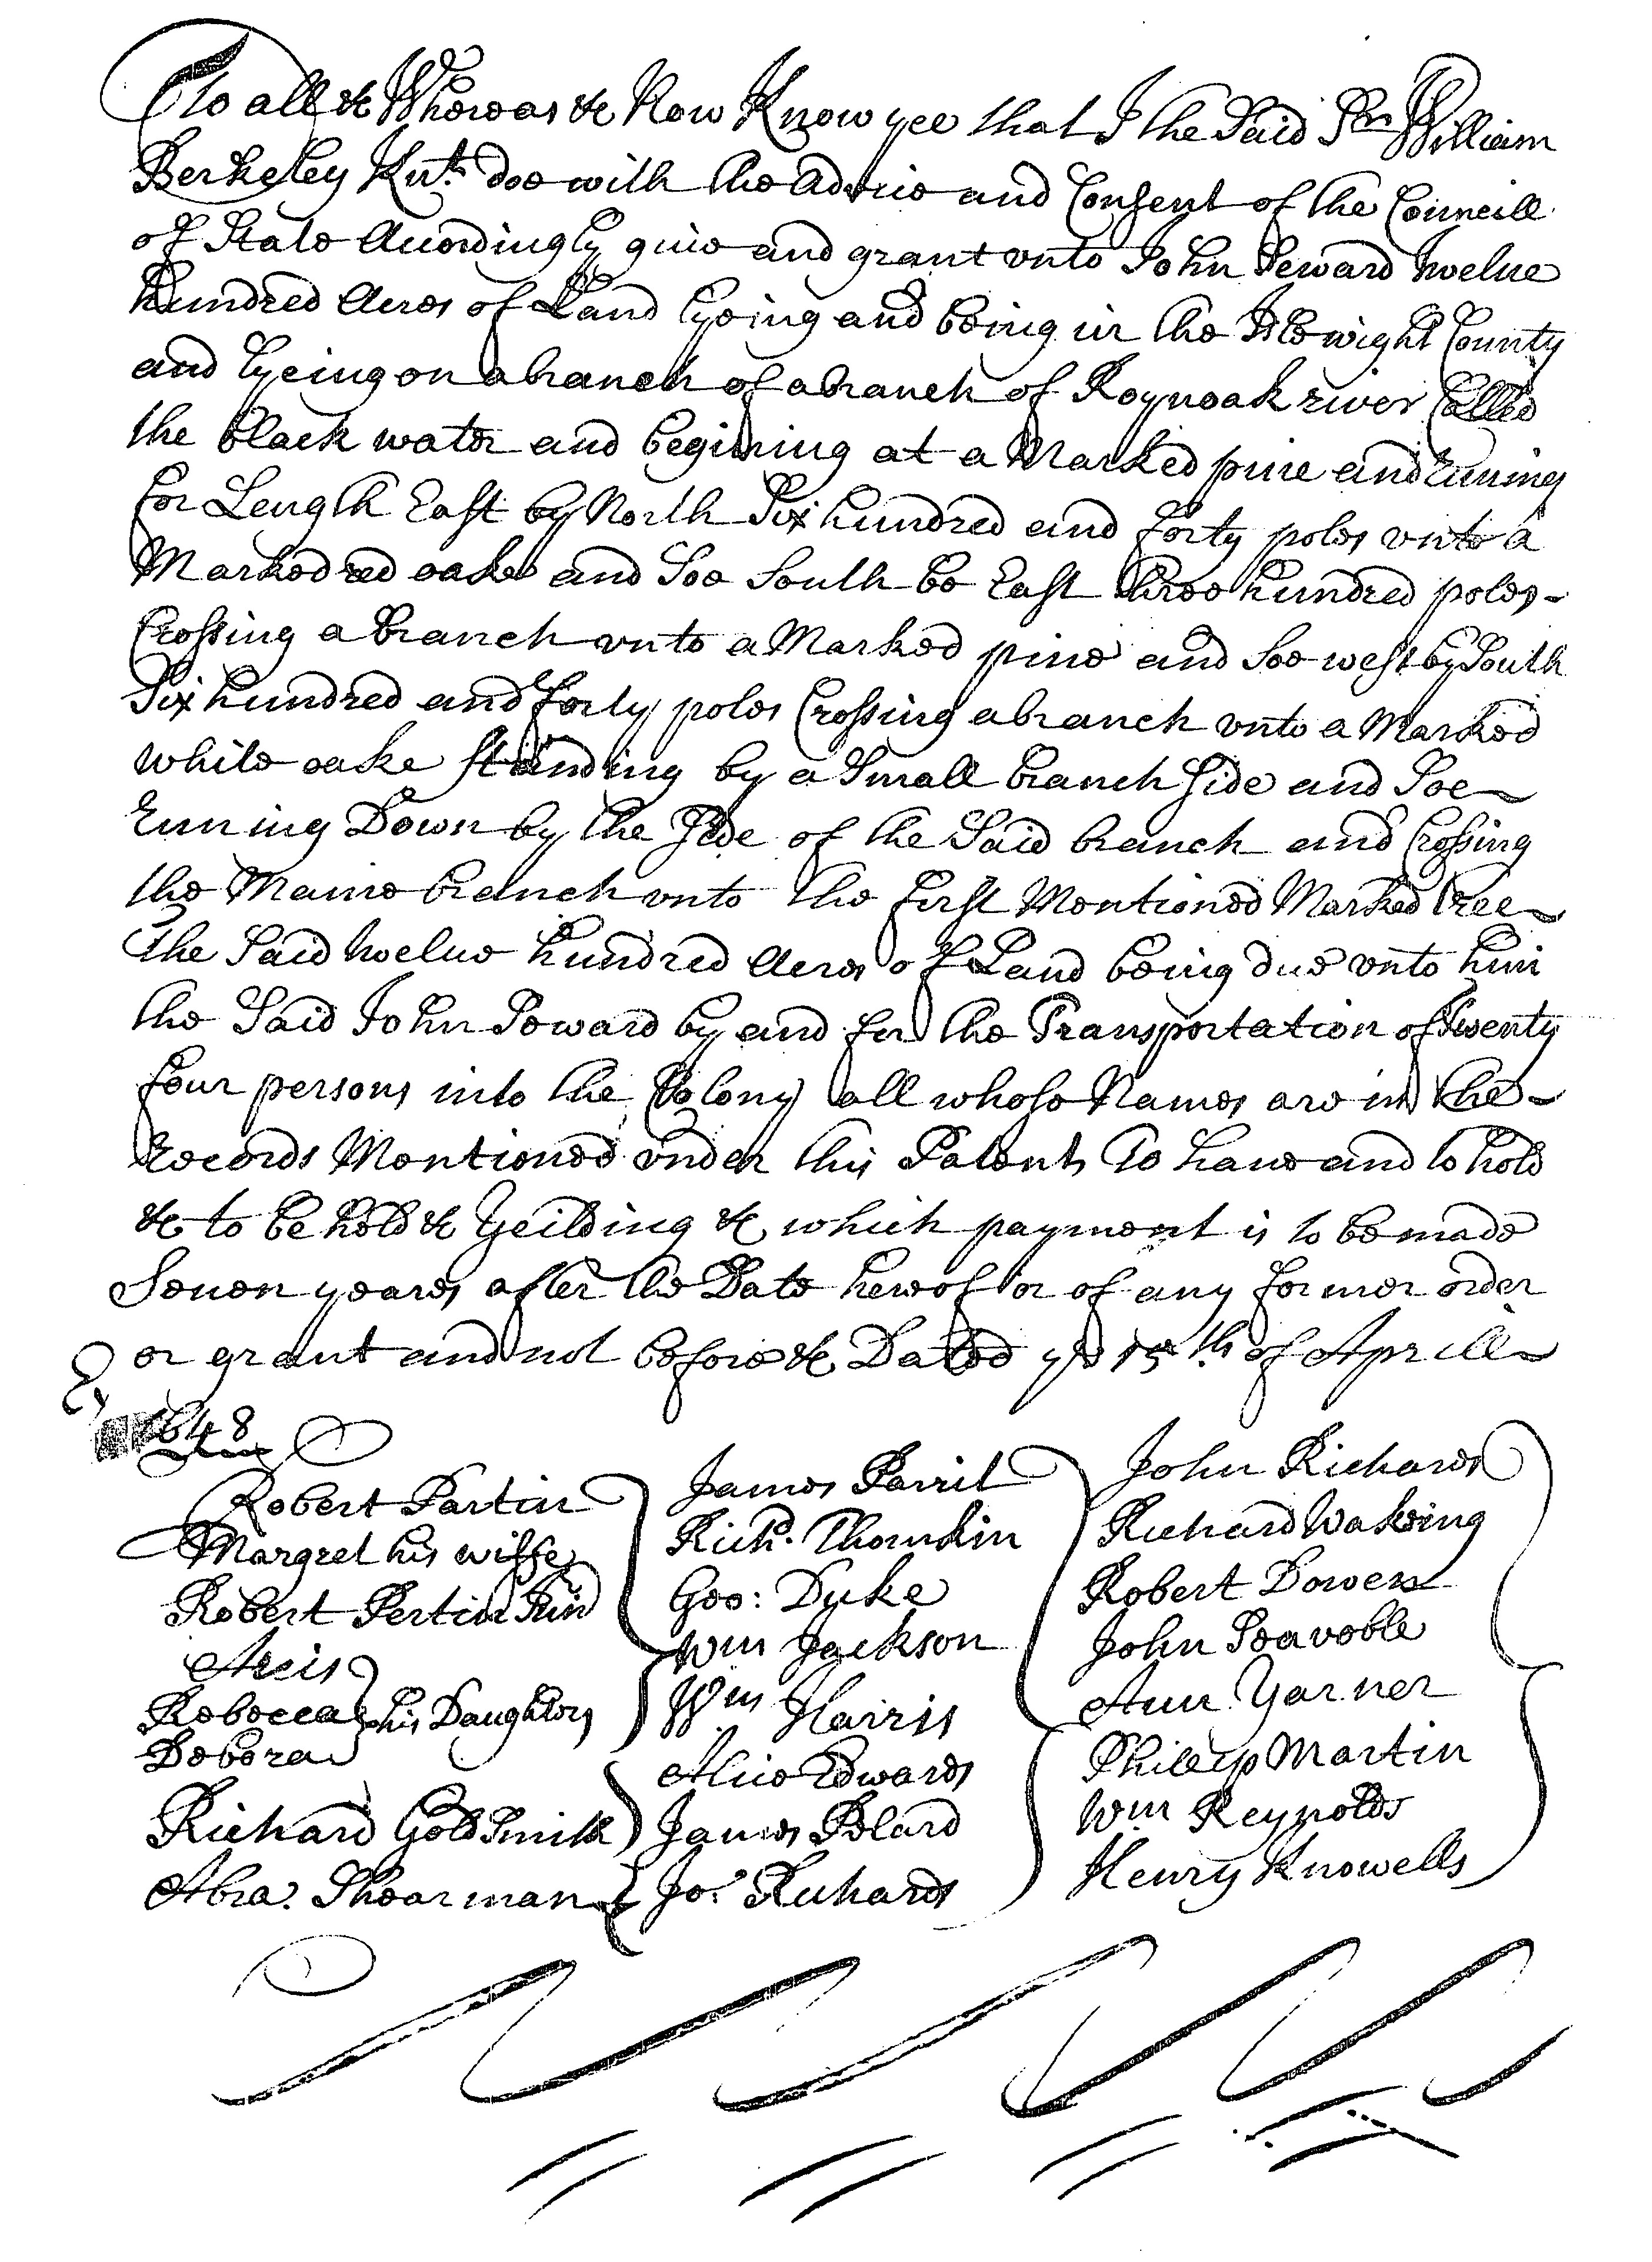 To all &c Whereas &c Now Know yee that I the Said Sr. William
Berkeley Knt. doe with the Advice and Consent of the Councill
of State Accordingly give and grant vnto John Seward twelue
hundred Acres of Land Lyeing and being in the Ile wight County
and Lyeing on a branch of a branch of Roynoak river Called
the black water and begining at a Marked pine and runing
for Length East by North Six hundred and forty poles vnto a
Marked red oake and Soe South be East three hundred poles
Crossing a branch vnto a Marked pine and Soe west by South
Six hundred and forty poles Crossing a branch vnto a Marked
white oake standing by a Small branch side and Soe
runing Down by the Side of the Said branch and Crossing
the Maine branch vnto the first Mentioned Marked tree
The Said twelue hundred Acres of Land being due vnto him
the Said John Seward by and for the Transportation of Twenty
four persons into the Colony all whose Names are in the
records Mentioned vnder this Patent To have and to hold
&c to be held &c Yeilding &c which payment is to be made
Seuen yeares after the Date hereof or of any former order
or grant and not before &c Dated ye 15th of Aprill
1648
Robert Partin
Margret his wiffe
Robert Pertin Jun
Avis
Rebecca his Daughters
Debora
Richard Gold Smith
Abra. Shearman
James Parrit
Richd. Thomkin
Geo: Duke
Wm Jackson
Wm Harris
Alice Edwards
James Polard
Jo: Richards
John Richards
Richard Wakeing
Robert Dowers
John Seavoble
Ann Garner
Phillip Martin
Wm Reynolds
Henry Knowells